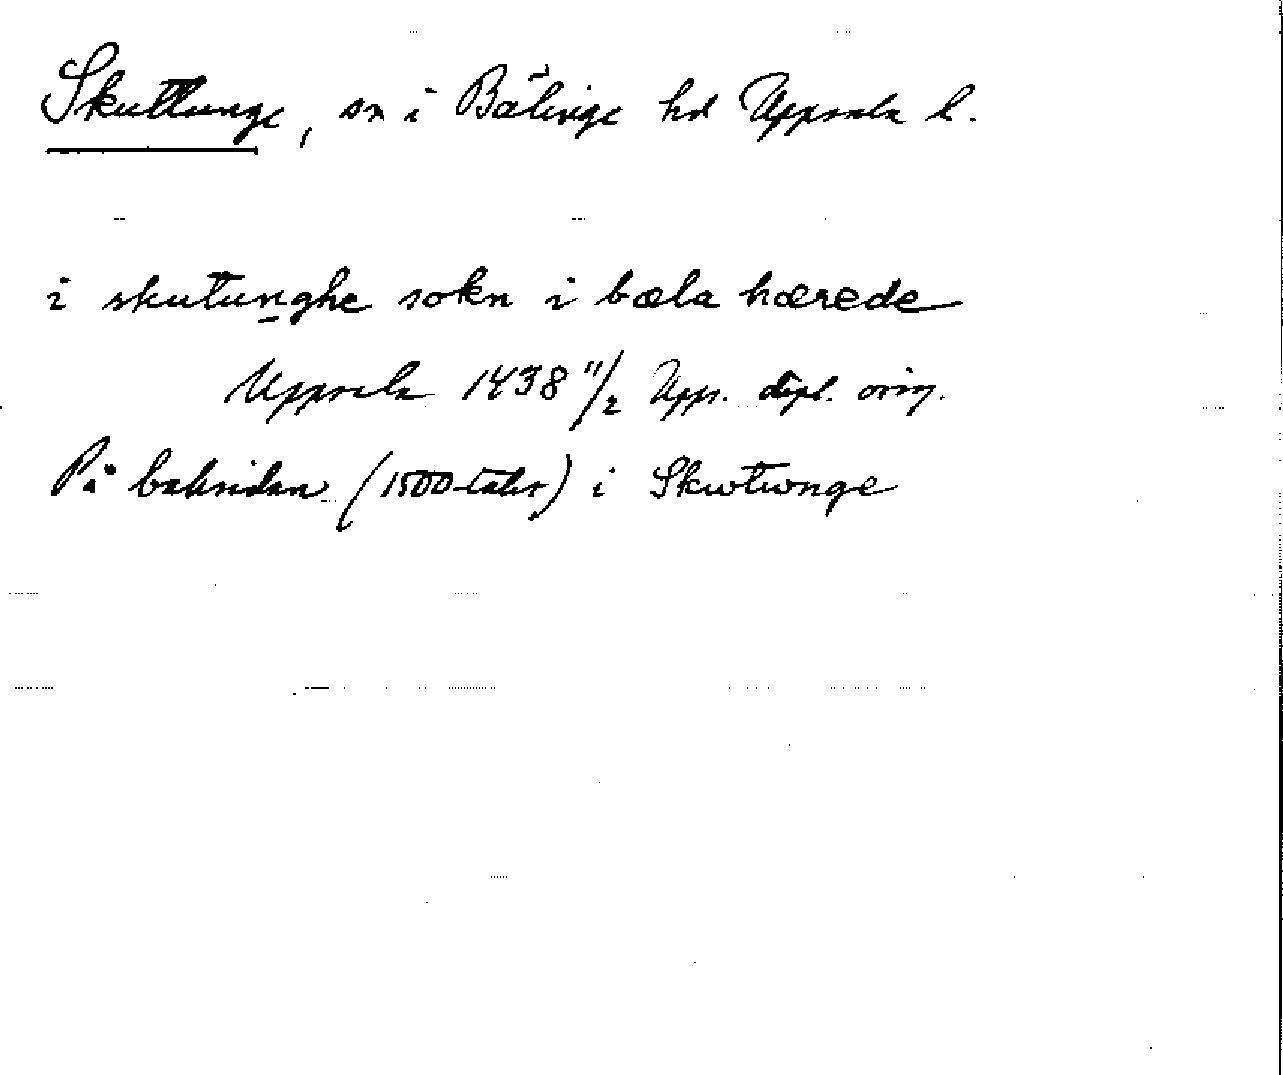 Skuttunge, sn i Bälinge hd Uppsala l.
i skutunghe sokn i bæla hærede
Uppsala 1438 11/2 Upps. dipl. orig.
På baksidan (1500-talet) i Skutunge